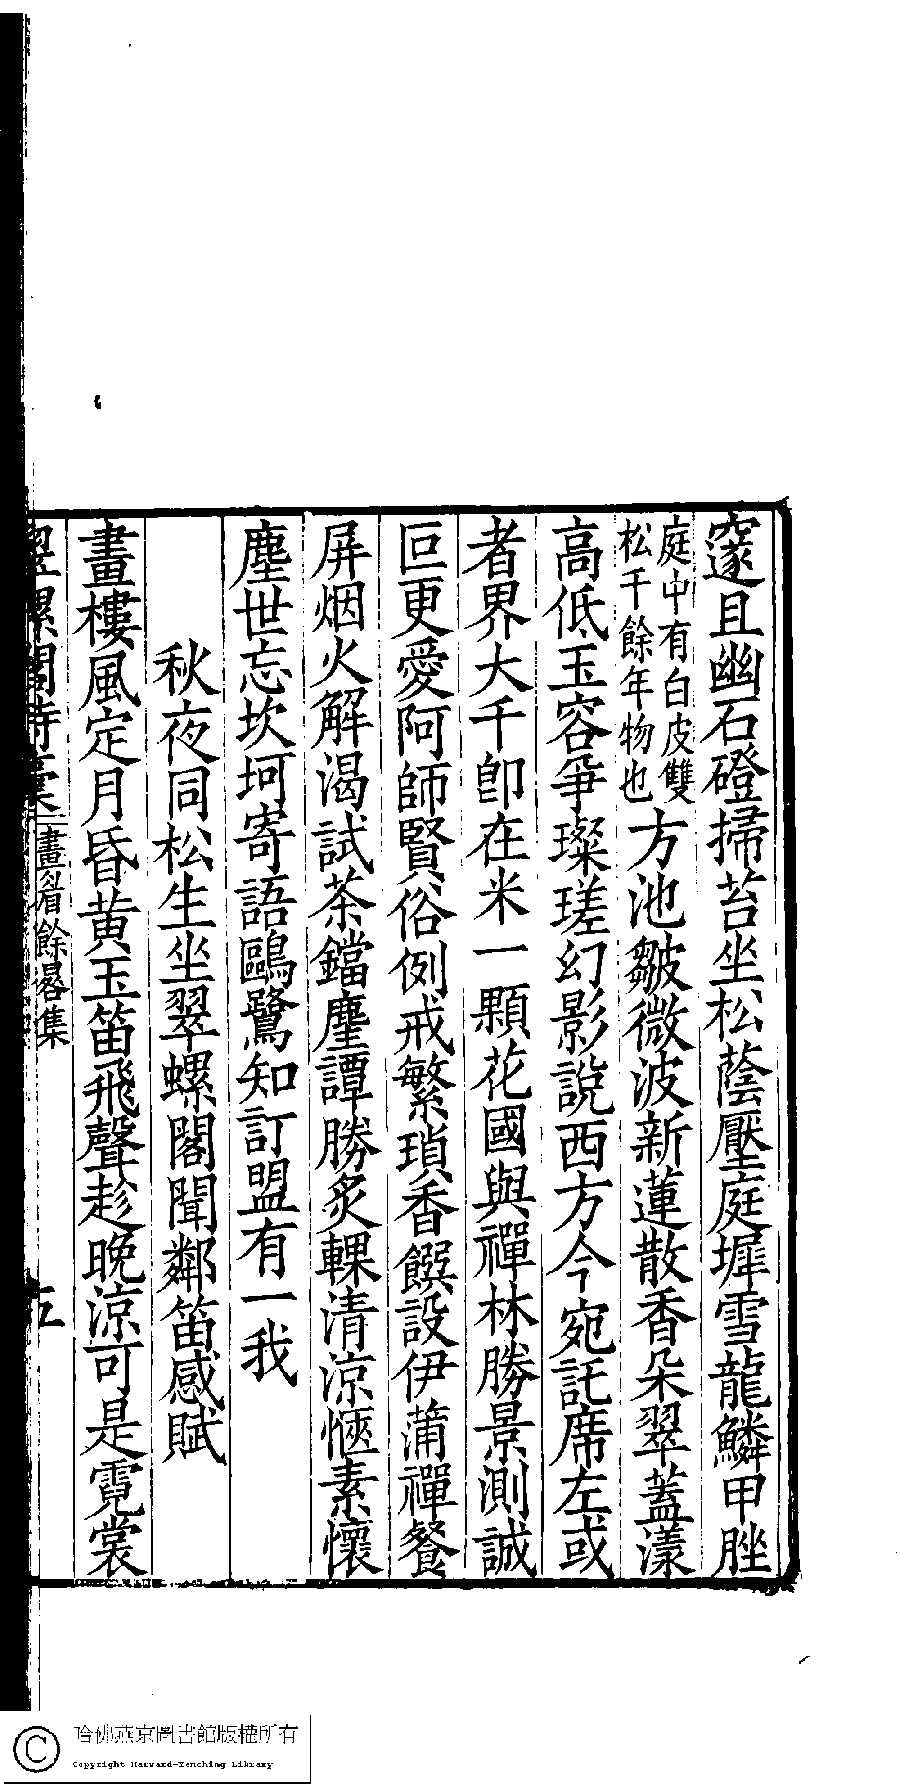 邃且幽石磴掃苔坐松蔭壓庭墀雪龍鱗甲脞
庭中有白皮雙
松千餘年物也
方池皺微波新蓮散香朵翠蓋漾
高低玉容爭璨瑳幻影說西方今宛託席左或
者界大千卽在米一顆花國與禪林勝景測誠
叵更愛阿師賢俗例戒繁瑣香饌設伊蒲禪餐
屏烟火解渴試茶鐺麈譚勝炙輠清涼愜素懷
塵世忘坎坷寄語鷗鷺知訂盟有一我
秋夜同松生坐翠螺閣聞鄰笛感賦
畫樓風定月昏黃玉笛飛聲趁晚涼可是霓裳
翠螺閣詩稾 二 畫眉餘晷集 五
哈佛燕京圖書館版權所有
Copyright Harvard-Yenching Library